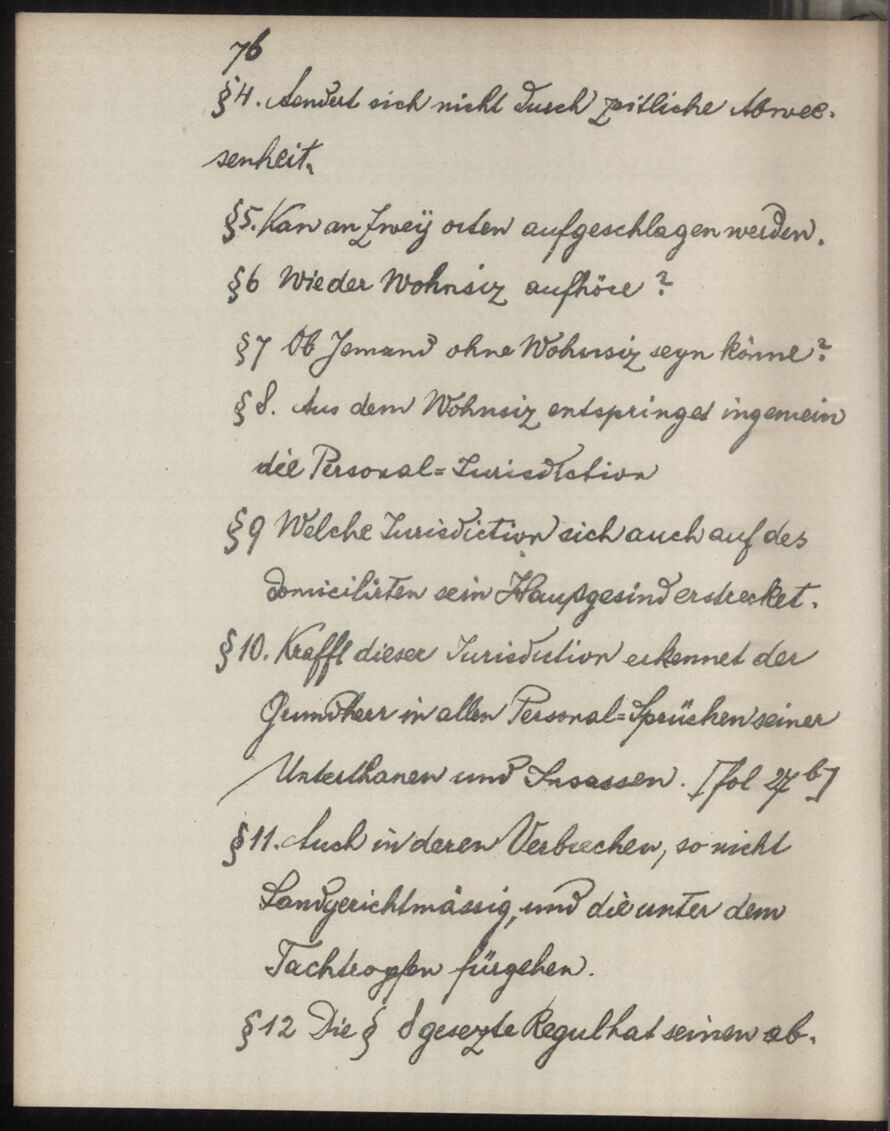 76
§4. Aendert sich nicht durch zeitliche Abwee-
senheit.
§5. Kan an zweÿ orten aufgeschlagen werden.
§6 Wie der Wohnsiz aufhöre?
§7 Ob Jemand ohne Wohnsiz seyn könne?
§8. Aus dem Wohnsiz entspringet ingemein
die Personal=Jurisdiction
§9 Welche Jurisdiction sich auch auf des
domicilirten sein Haußgesind erstrecket.
§10. Krafft dieser Jurisdiction erkennet der
Grundherr in allen Personal=Sprüchen seiner
Unterthanen und Insassen. [fol 27 b]
§11. Auch in deren Verbrechen, so nicht
Landgerichtmässig, und die unter dem
Tachtropfen fürgehen.
§12 Die § 8 gesezte Regul hat seinen ab-